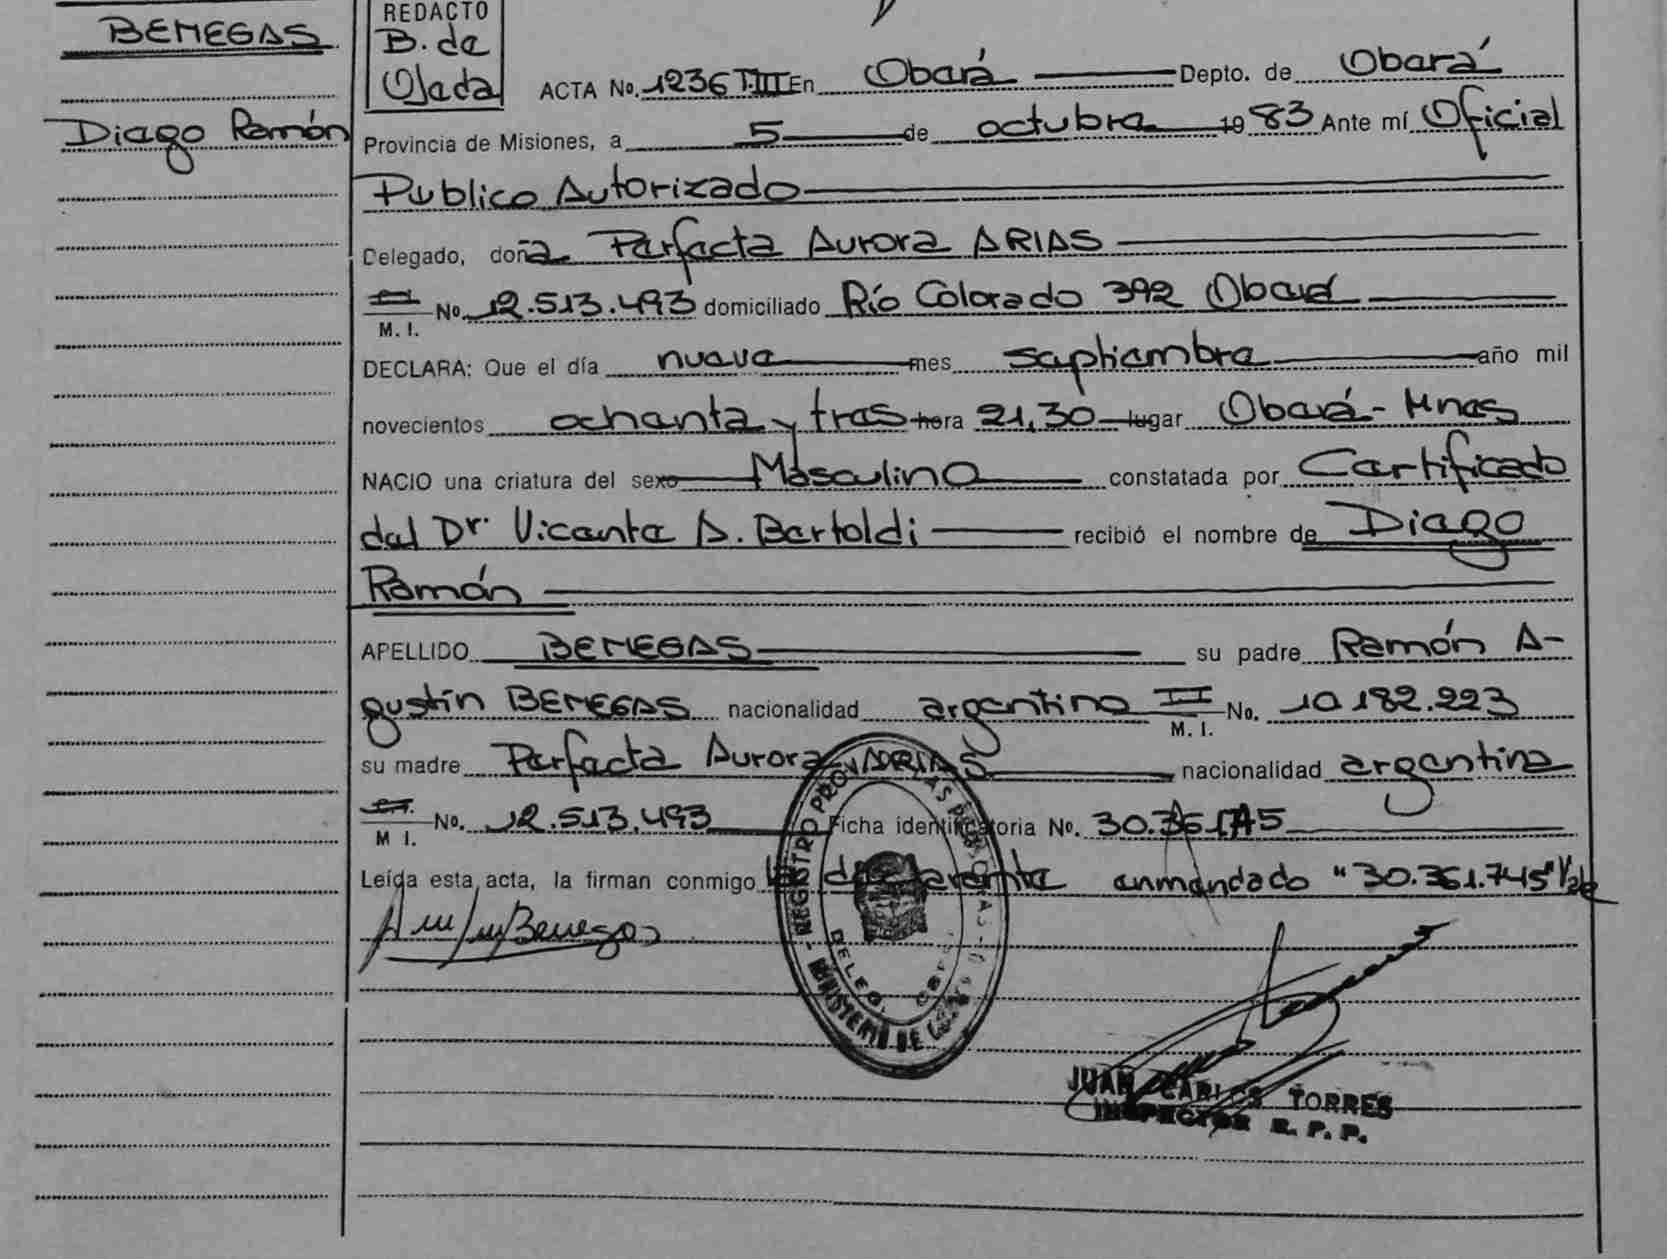 BENEGAS
Diego Ramón
REDACTO
B. de
Ojeda
ACTA No. 1236 T.III En Oberá Depto. de Oberá
Provincia de Misiones, a 5 de octubre 19 83 Ante mí Oficial
Publico Autorizado
Delegado, doña Perfecta Aurora ARIAS
M. I. No. 12.513.493 domiciliado Río Colorado 392 Oberá
DECLARA: Que el día nueve mes septiembre año mil
novecientos ochenta y tres hora 21,30 lugar Oberá - Mnes
NACIO una criatura del sexo Masculino constatada por Certificado
del Dr. Vicente A. Bertoldi recibió el nombre de Diego
Ramón
APELLIDO BENEGAS su padre Ramón A-
gustín BENEGAS nacionalidad argentino M. I. No. 10.182.223
su madre Perfecta Aurora ARIAS nacionalidad argentina
M I. No. 12.513.493 Ficha identificatoria No. 30.361.745
Leída esta acta, la firman conmigo la declarante enmendado "30.361.745" Vale
Benegas
REGISTRO PROV. DE LAS PERSONAS
MINISTERIO DE
DELEG.
JUAN CARLOS TORRES
INSPECTOR R. P. P.